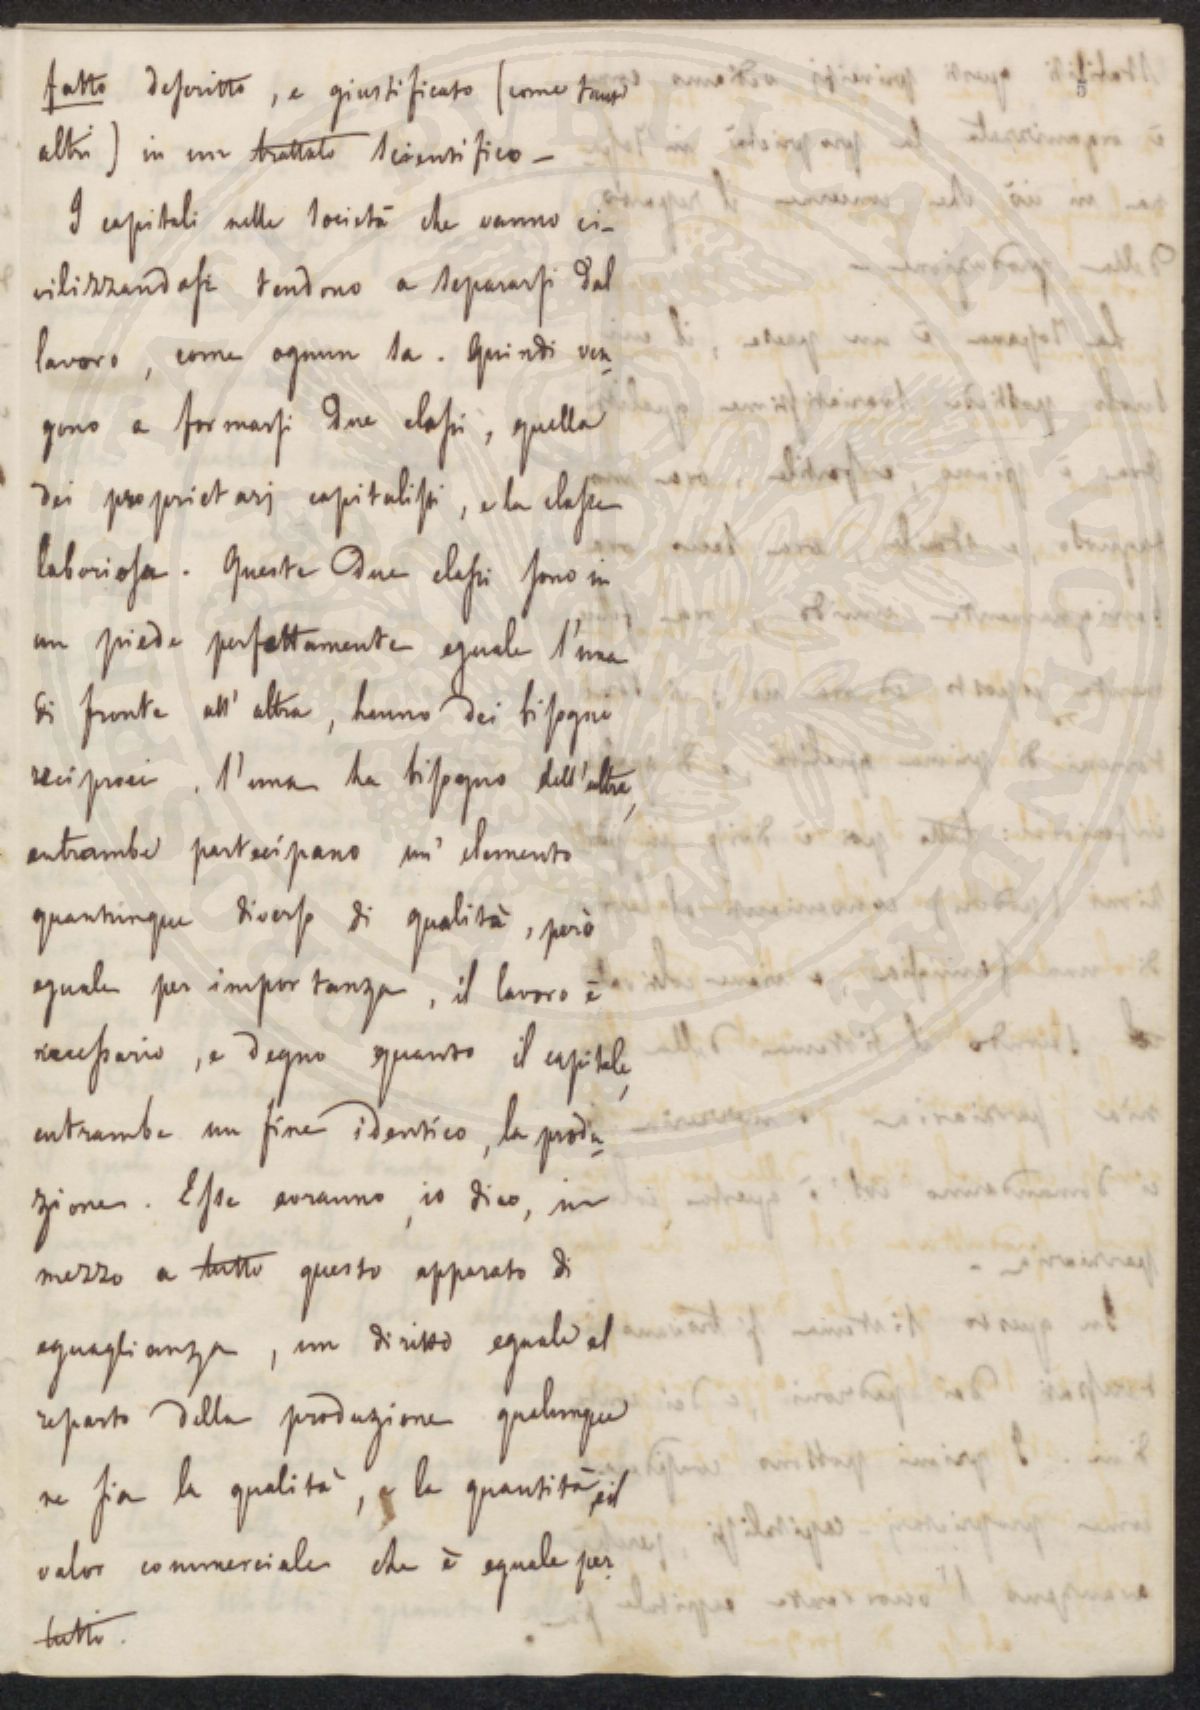 fatto descritto, e giustificato (come tanti
altri) in un trattato scientifico –
I capitali nelle società che vanno ci-
vilizzandosi tendono a separarsi dal
lavoro, come ognun sa. Quindi ven-
gono a formarsi due classi, quella
dei proprietarj capitalisti, e la classe
laboriosa. Queste due classi sono in
un piede perfettamente eguale l'una
di fronte all'altra, hanno dei bisogni
reciproci, l'una ha bisogno dell'altra,
entrambe partecipano un' elemento
quantunque diverso di qualità, però
eguale per importanza, il lavoro è
necessario, e degno quanto il capitale,
entrambe un fine identico, la produ-
zione. Esse avranno, io dico, in
mezzo a tutto questo apparato di
eguaglianza, un diritto eguale al
reparto della produzione qualunque
ne sia la qualità, e la quantità, e il
valor commerciale che è eguale per
tutto.